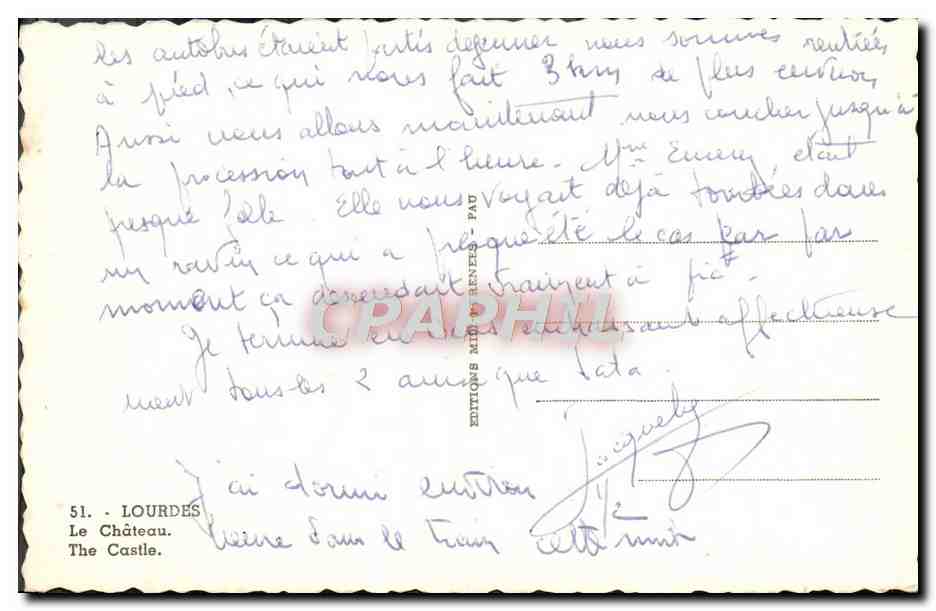 les autobus étaient partis déjeuner nous sommes rentrées
à pied, ce qui nous fait 3 km de plus environ
Aussi nous allons maintenant nous coucher jusqu'à
la procession tout à l'heure. Mme Emery, était
presque folle. Elle nous voyait déjà tombées dans
un ravin ce qui a presque été le cas car par
moment ça descendait vraiment à pic.
Je termine en vous embrassant affectueuse
ment tous les 2 ainsi que Tata.
Jacquely
J'ai dormi environ 1/2
heure dans le train cette nuit.
EDITIONS MIDI-PYRENEES - PAU
CPAPHIL
51. - LOURDES
Le Château.
The Castle.